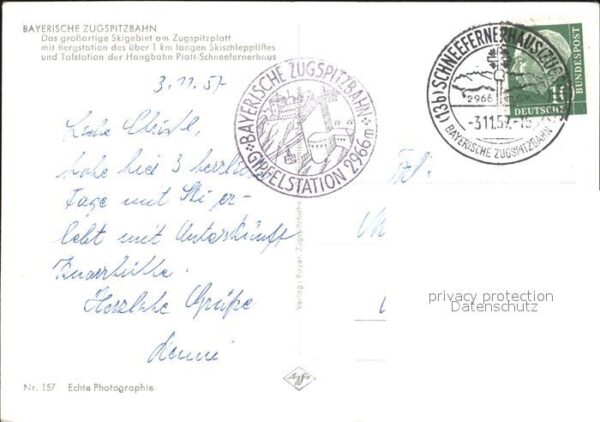 BAYERISCHE ZUGSPITZBAHN
Das großartige Skigebiet am Zugspitzplatt
mit Bergstation des über 1 km langen Skischleppliftes
und Talstation der Hangbahn Platt-Schneefernerhaus
3.11.57
BAYERISCHE ZUGSPITZBAHN
GIPFELSTATION 2966 m
(13b) SCHNEEFERNERHAUS
2966
-3.11.57.-15
BAYERISCHE ZUGSPITZBAHN
10
DEUTSCHE
BUNDESPOST
habe hier 3 herrliche
Tage mit Ski er-
lebt mit Unterkunft
Knorrhütte.
Herzliche Grüße
Verlag: Bayer. Zugspitzbahn
Agfa
privacy protection
Datenschutz
Nr. 157 Echte Photographie